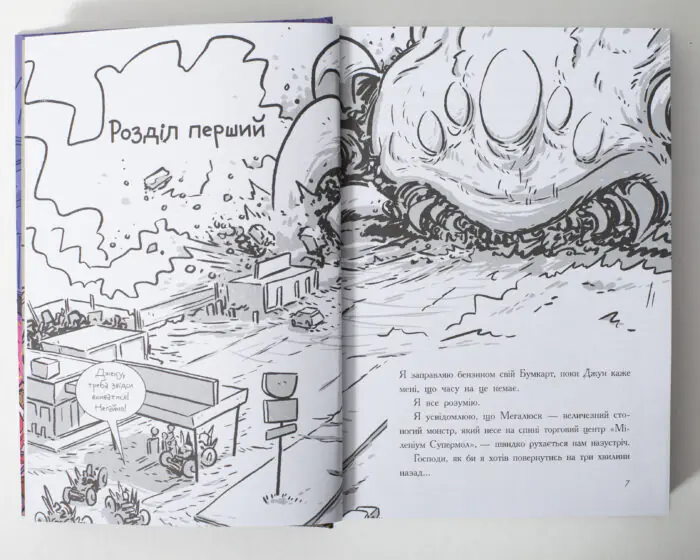 Розділ перший
Джеку,
треба звідси
вшиватися!
Негайно!
Я заправляю бензином свій Бумкарт, поки Джун каже
мені, що часу на це немає.
Я все розумію.
Я усвідомлюю, що Мегалюск — величезний сто-
ногий монстр, який несе на спині торговий центр «Мі-
леніум Супермол», — швидко рухається нам назустріч.
Господи, як би я хотів повернутись на три хвилини
назад...
7